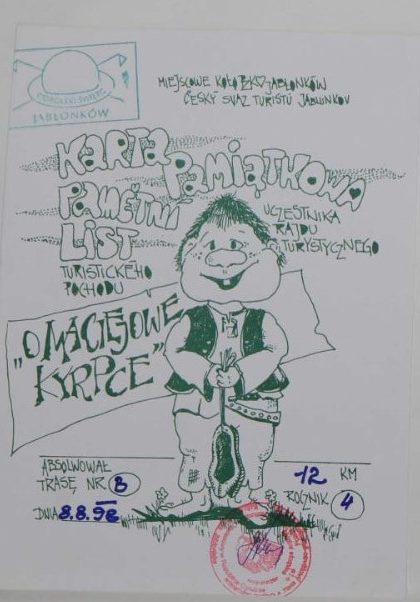 JABŁONKÓW
MIEJSCOWE KOŁO PZKO JABŁONKÓW
ČESKÝ SVAZ TURISTŮ JABLUNKOV
KARTA PAMIĄTKOWA
PAMĚTNÍ
LIST
UCZESTNIKA
RAJDU
TURYSTYCZNEGO
TURISTICKÉHO
POCHODU
"O MACIEJOWE
KYRPCE"
ABSOLWOWAŁ
TRASĘ NR. B
12 KM
ROCZNIK 4
DNIA 8.8.98